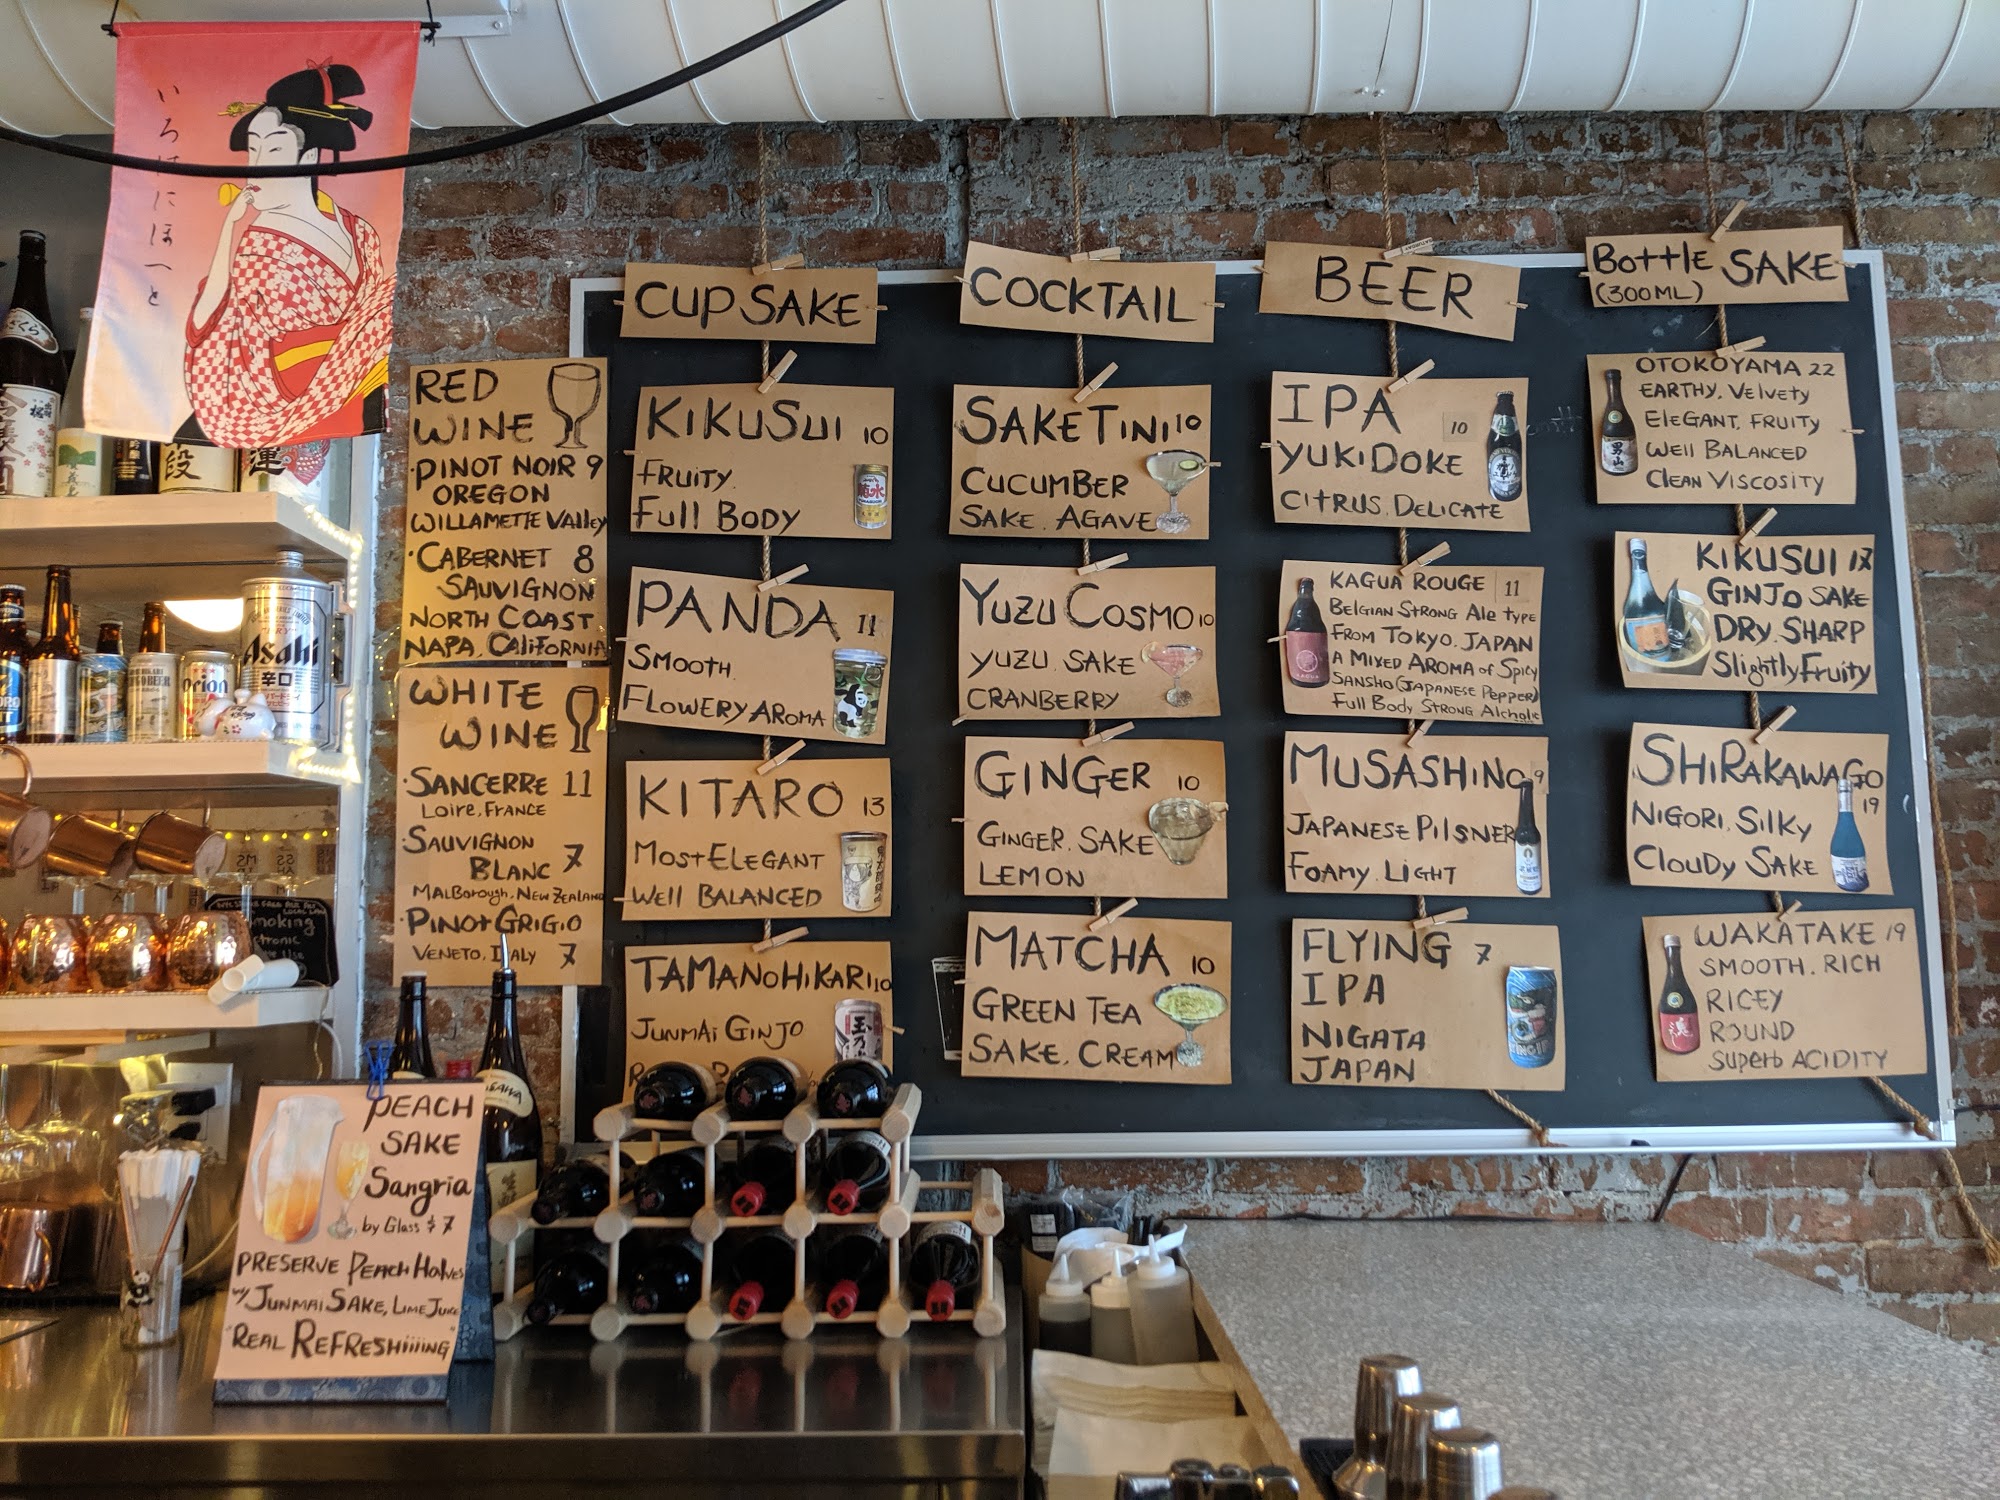 いろはにほへと
RED
WINE
·PINOT NOIR 9
OREGON
WILLAMETTE VAlley
·CABERNET 8
SAUVIGNON
NORTH COAST
NAPA, CALIFORNIA
WHITE
WINE
·SANCERRE 11
LOIRE, FRANCE
·SAUVIGNON
BLANC 7
MALBOROUGH, NEW ZEALAND
·PINOT GRIGIO
VENETO, ITALY 7
CUP SAKE
KIKUSUI 10
FRUITY.
Full BODY
PANDA 11
SMOOTH.
FLOWERY AROMA
KITARO 13
MOST ELEGANT
WELL BALANCED
TAMANOHIKARI 10
JUNMAI GINJO
COCKTAIL
SAKETINI 10
CUCUMBER
SAKE. AGAVE
YUZU COSMO 10
YUZU. SAKE
CRANBERRY
GINGER 10
GINGER. SAKE
LEMON
MATCHA 10
GREEN TEA
SAKE. CREAM
BEER
IPA 10
YUKIDOKE
CITRUS. DELICATE
KAGUA ROUGE 11
BELGIAN STRONG Ale TYPE
FROM TOKYO. JAPAN
A MIXED AROMA of Spicy
SANSHO (JAPANESE PEPPER)
Full BODY STRONG Alchole
MUSASHINO 9
JAPANESE PILSNER
FOAMY. LIGHT
FLYING 7
IPA
NIGATA
JAPAN
BottlE SAKE
(300ML)
OTOKOYAMA 22
EARTHY. Velvety
EleGANT. FRUITY
Well BALANCED
CleAN VISCOSITY
KIKUSUI 17
GINJO SAKE
DRY. SHARP
Slightly Fruity
SHIRAKAWAGO
19
NIGORI. Silky
CloUDY SAKE
WAKATAKE 19
SMOOTH. RICH
RICEY
ROUND
SUPERb ACIDITY
PEACH
SAKE
Sangria
by Glass $7
PRESERVE PEACH HAlves
w/ JUNMAI SAKE, LIME JUICE
"REAL REFRESHiiiiNG
Asahi
辛口
Orion
段